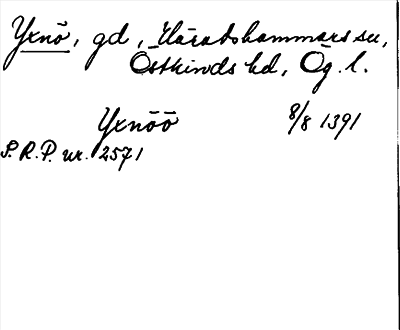 Yxnö, gd, Häradshammars sn,
Östkinds hd, Ög. l.
Yxnöö 8/8 1391
S.R.P. nr. 2571